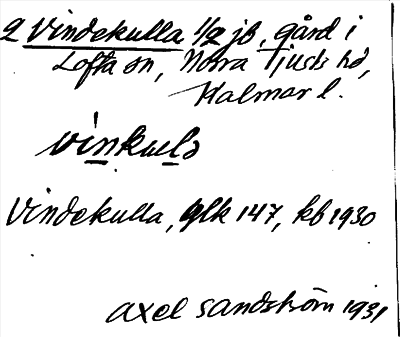 2 Vindekulla 1/2 jb, gård i
Lofta sn, Norra Tjusts hd,
Kalmar l.
vinkulə
Vindekulla, glk 147, kb 1930
Axel Sandström 1931